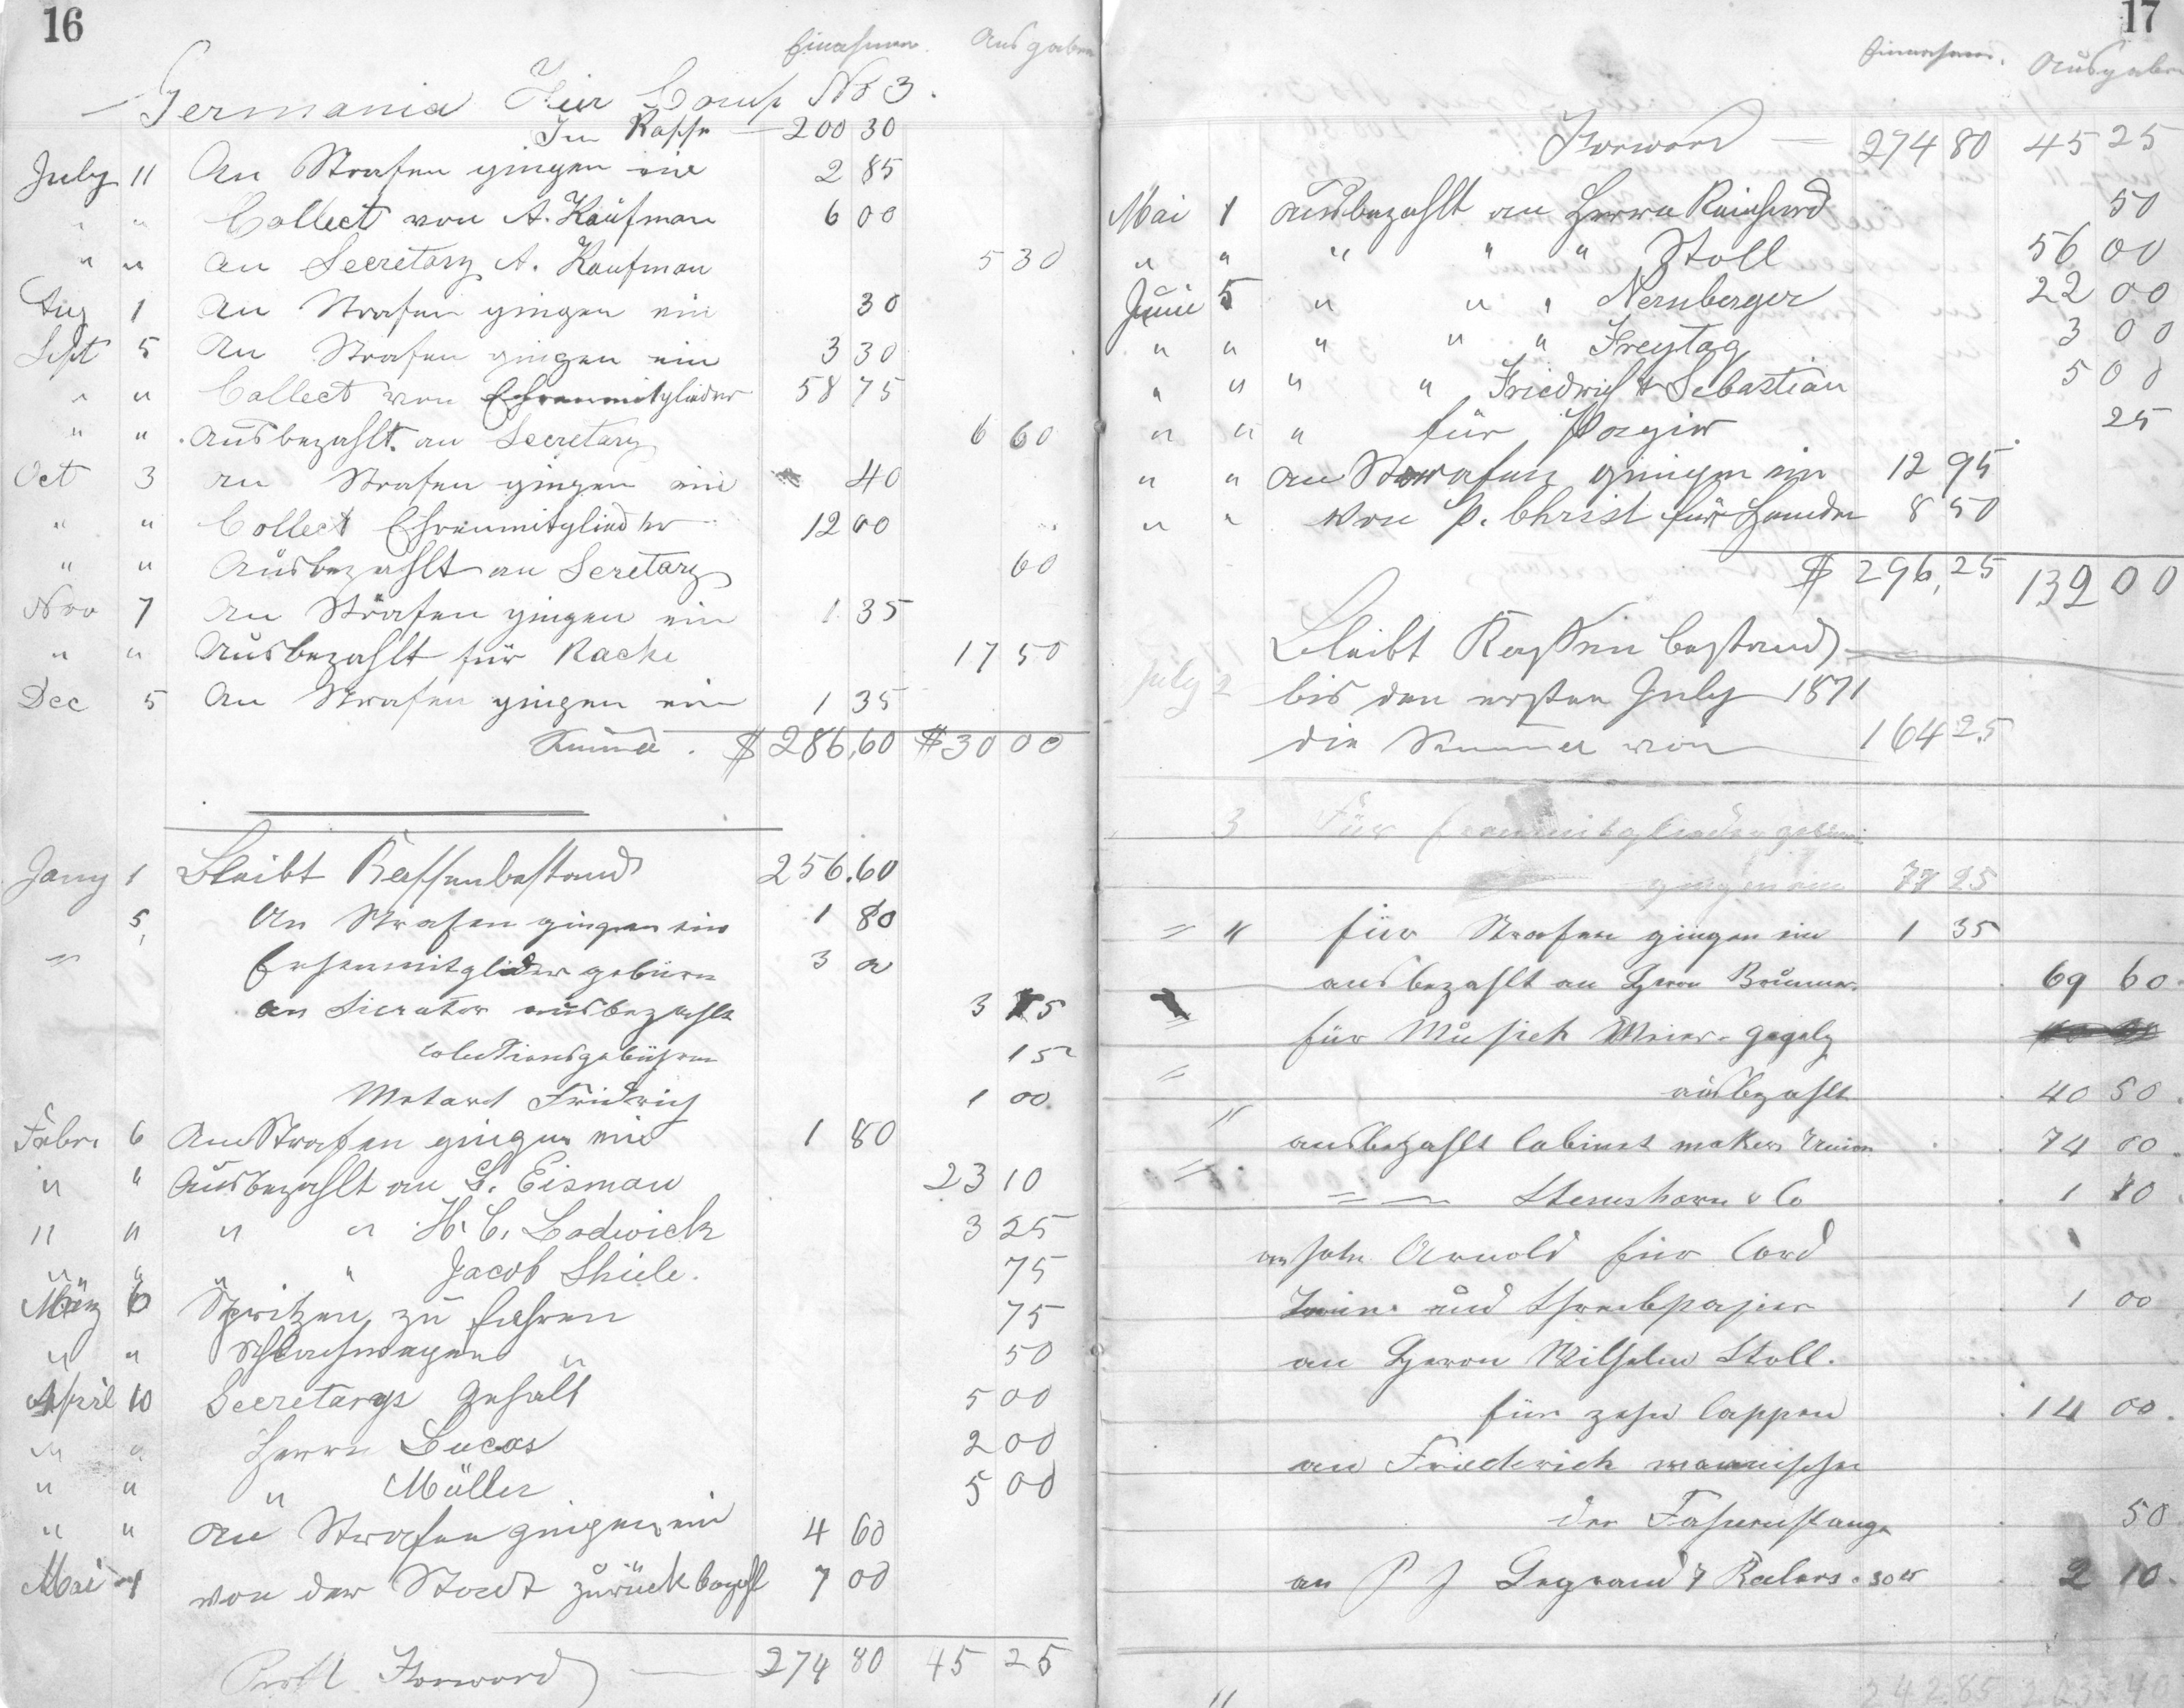 16
Einahmen. Ausgaben
Germania Feir Comp No 3.
In Kasse 200 30
July 11 An Strafen gingen ein 2 85
" " Collect von A. Kaufman 6 00
" " An Secretary A. Kaufman 5 30
Aug 1 An Strafen gingen ein 30
Sept 5 An Strafen gingen ein 3 30
" " Collect von Ehrenmitglieder 58 75
" " Ausbezahlt an Secretary 6 60
Oct 3 An Strafen gingen ein 40
" " Collect Ehrenmitglieder 12 00
" " Ausbezahlt an Seretary 60
Nov 7 An Strafen gingen ein 1 35
" " Ausbezahlt für Racke 17 50
Dec 5 An Strafen gingen ein 1 35
Summa. $ 286,60 $ 30 00
Jany 1 Bleibt Kassenbestand 256.60
5, An Strafen gingen ein 1 80
" Ehrenmitglider gebüren 3
an Sicrator ausbezahlt 3 75
Colectionsgebühren 15
Fridrich 1 00
Febr. 6 An Strafen gingen ein 1 80
" " Ausbezahlt an L. Eisman 23 10
" " " " H. C. Lodwick 3 25
" " " " Jacob Shiele. 75
März 6 Spritzen zu fahren 75
" " Schlachwagen " 50
April 10 Secretarys Gehalt 5 00
" " Herrn Lucas 2 00
" " " Müller 5 00
" " An Strafen gingen ein 4 60
Mai 1 von der Stadt zurückbezahl 7 00
Forword 274 80 45 25
17
Einnahmen. Ausgaben
Forword 274 80 45 25
Mai 1 Ausbezahlt an Herrn Reinhard 50
" " " " " Stoll 56 00
Juni 5 " " " Nernberger 22 00
" " " " " Freytag 3 00
" " " " Friedrich & Sebastian 5 00
" " " für Papir 25
" " An Strafen gingen ein 12 95
" " Von P. Christ für Hemden 8 50
$ 296,25 132 00
Bleibt Kassen bestand
July 2 bis den ersten July 1871
die Summa von 164 25
3 Für Ehrenmitglieder gebüren
gingen ein 77 25
" " für Strafen gingen ein 1 35
ausbezahlt an Herrn Brunner. 69 60.
" für Musick Meier
" ausbezahlt 40 50.
" ausbezahlt Cabinet makers Union 74 00.
" Stennshorn & Co 1 10
an John Arnold für Card
und Schreibpapier 1 00
an Herrn Wilhelm Stoll.
für zehn Cappen 14 00.
an Friederich
der Fahnenstange 50.
an P J Legrand 7 Badges . 30 2 10.
242 85